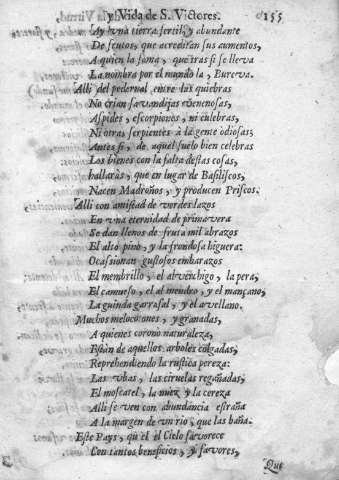 y Vida de S. Victores. 155
Ay vna tierra fertil, y abundante
De frutos, que acreditan sus aumentos,
A quien la fama, que tras si se lleva
La nombra por el mundo la, Bureva.
Alli del pedernal entre las quiebras
No crian savandijas venenosas,
Aspides, escorpiones, ni culebras,
Ni otras serpientes à la gente odiosas;
Antes si, de aquel suelo bien celebras
Los bienes con la falta destas cosas,
hallaràs, que en lugar de Basiliscos,
Nacen Madroños, y producen Priscos.
Alli con amistad de verdes lazos
En vna eternidad de primavera
Se dan llenos de fruta mil abrazos
El alto pino, y la frondosa higuera:
Ocassionan gustosos embarazos
El membrillo, el alverchigo, la pera,
El camueso, el almendro, y el mançano,
La guinda garrafal, y el avellano.
Muchos melocotones, y granadas,
A quienes coronò naturaleza,
Estàn de aquellos arboles colgadas,
Reprehendiendo la rustica pereza:
Las vbas, las ciruelas regañadas,
El moscatel, la nuez y la cereza
Alli se ven con abundancia estraña
A la margen de vn rio, que las baña.
Este Pays, qu el el Cielo favorece
Con tantos beneficios, y favores,
Que